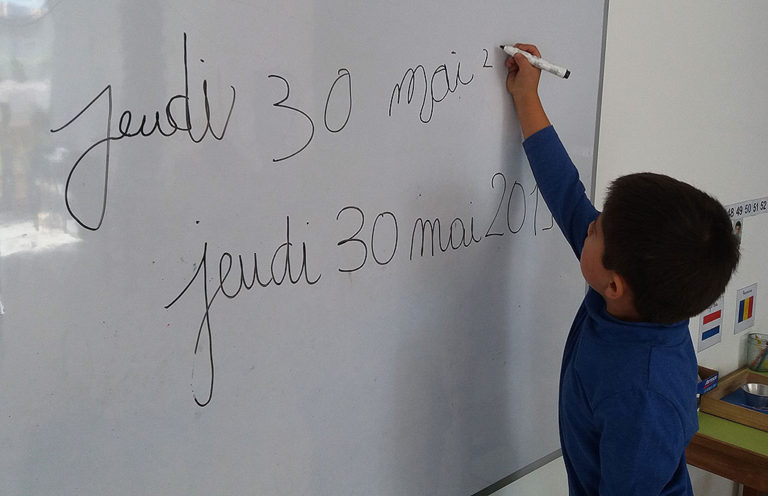 jeudi 30 mai 2
jeudi 30 mai 201
48 49 50 51 52